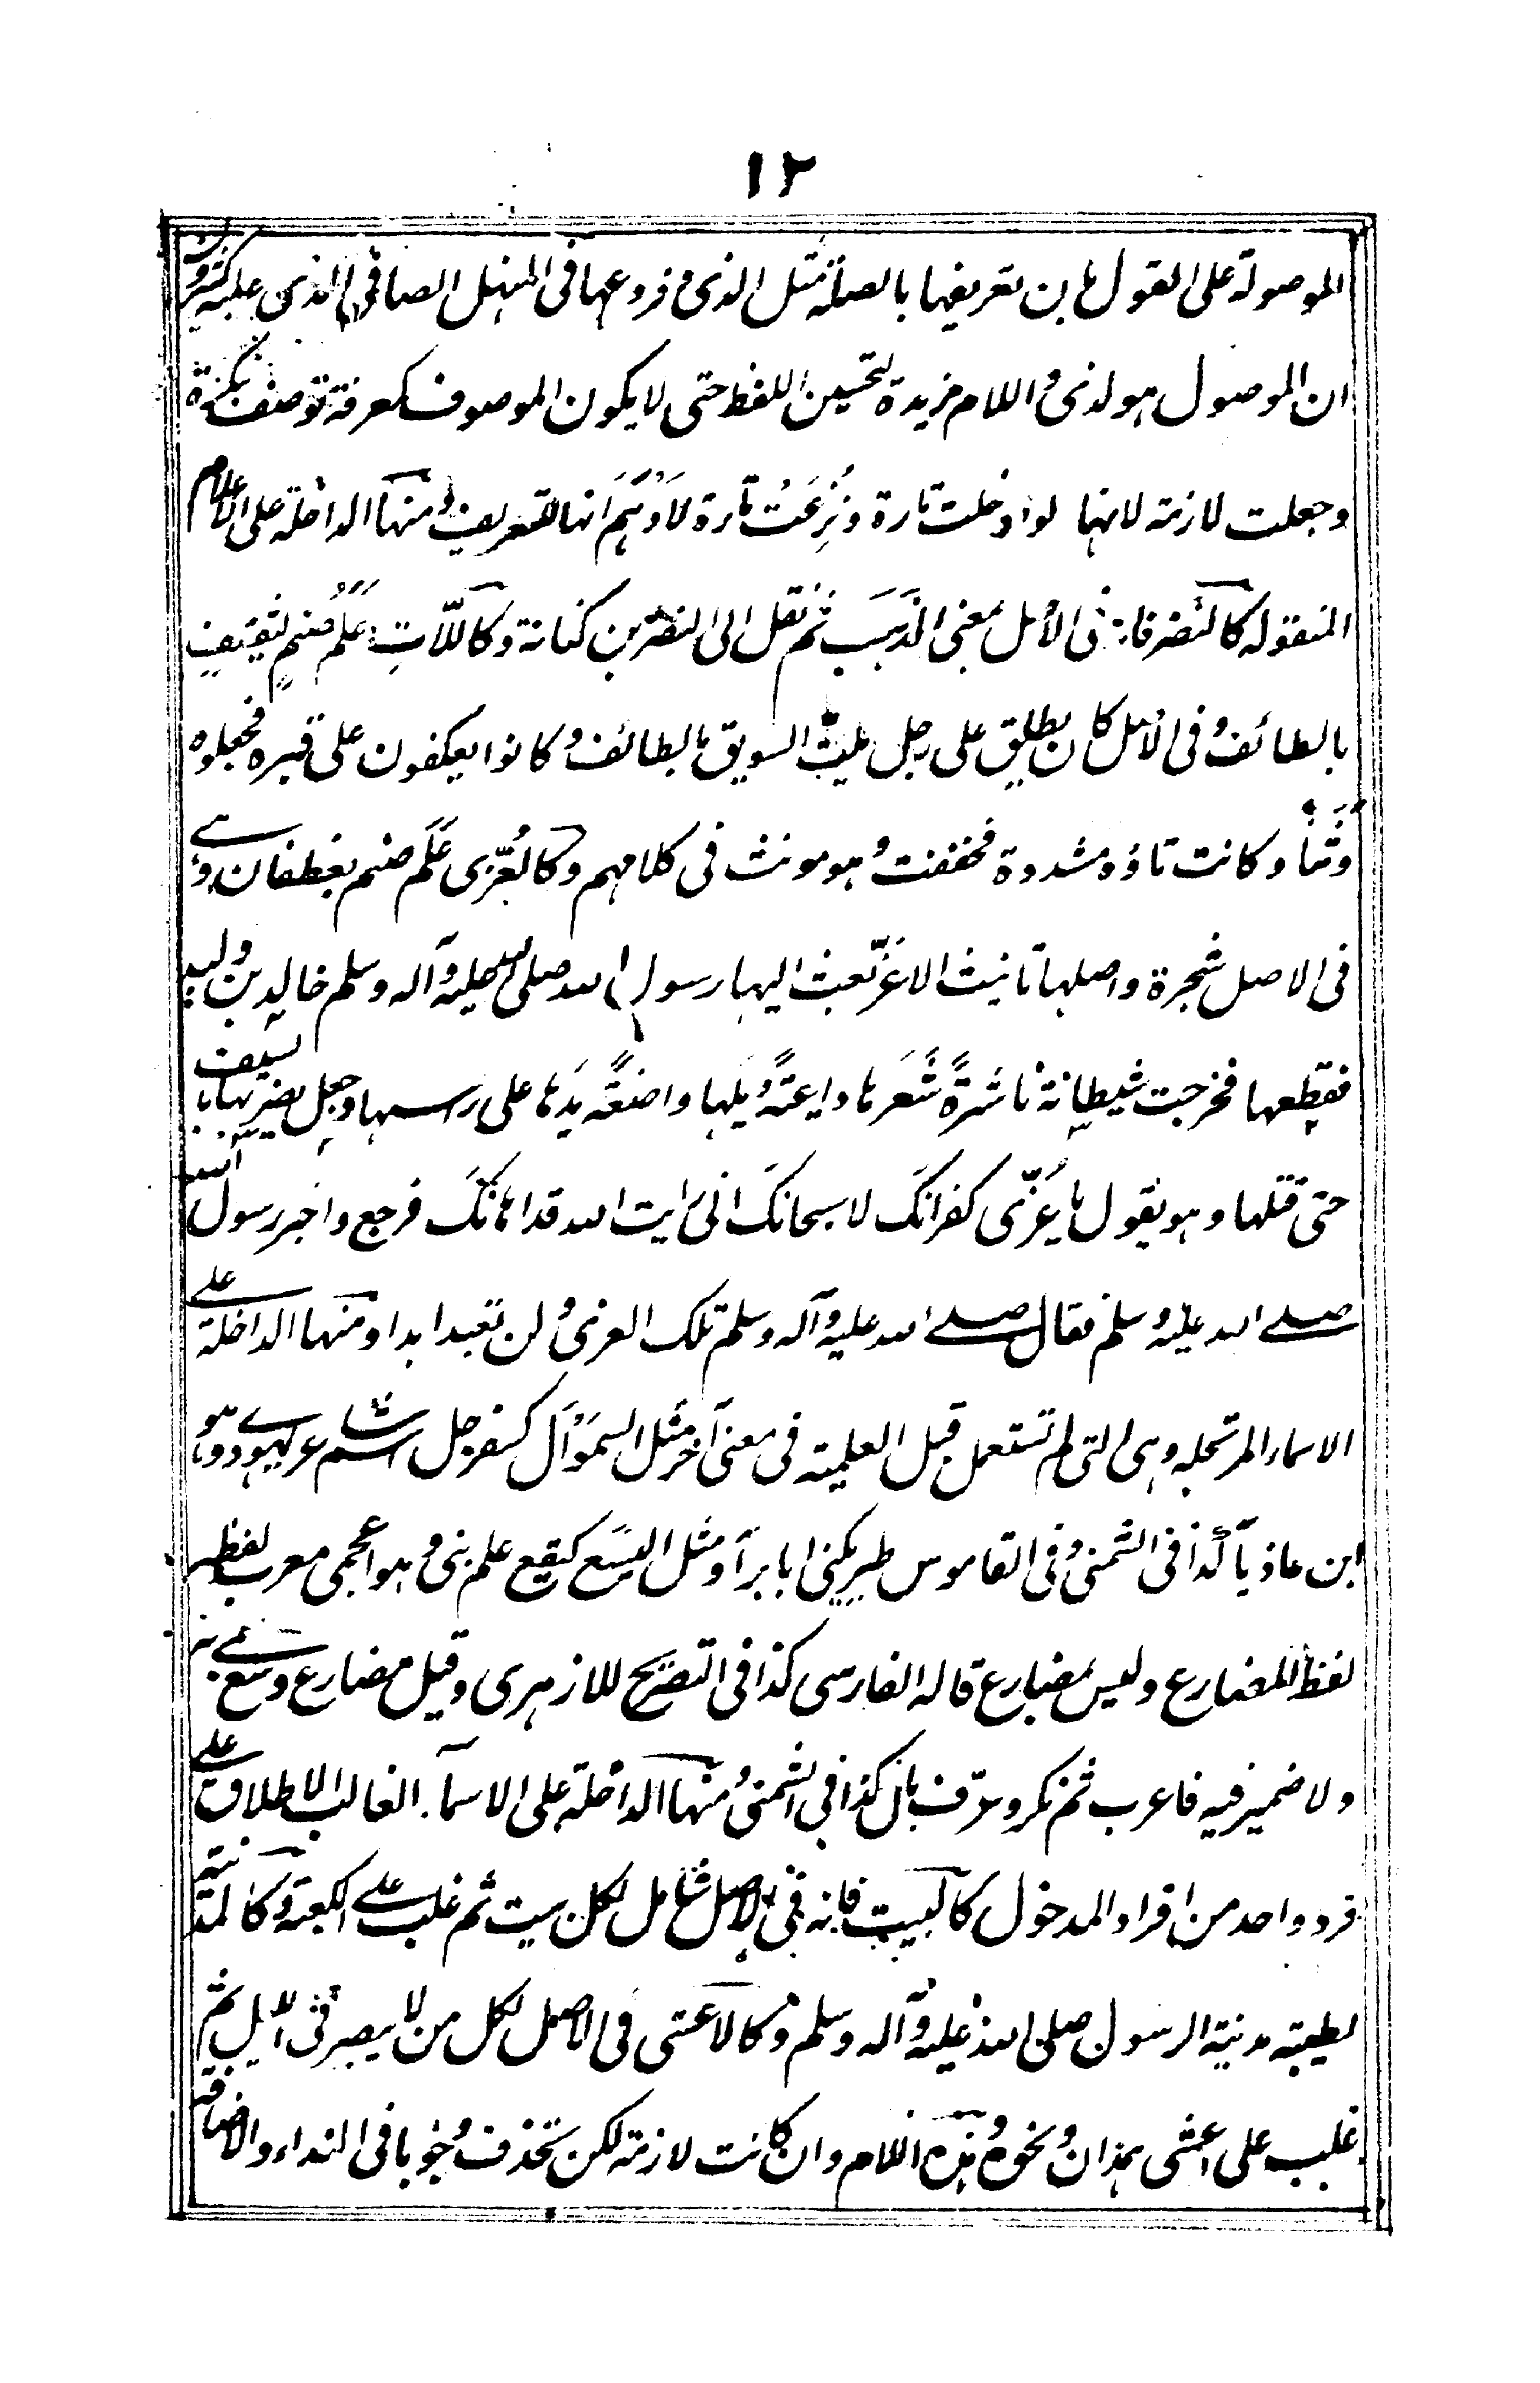 ١٢
الموصولة على القول بان تعريفها بالصلة مثل الذى و فروعها فى المنهل الصافى الذى عليه كثيرون
ان الموصول هو لذى و اللام مزيدة لتحسين اللفظ حتى لا يكون الموصوف كمعرفة توصف بنكرة
و جعلت لازمة لانها لو ادخلت تارة و نُزِعَتْ تارة لَأَوْهَمَ انها للتعريف و منها الداخلة على الاعلام
المنقوله كالنضر فانه فى الاصل بمعنى الذَهَبَ ثم نقل الى النضر بن كنانة و كاللّاتِ عَلَمُ صنمٍ لثقيف
بالطائف و فى الاصل كان يطلق على رجل يلت السويق بالطائف و كانوا يعكفون على قبره فجعلوه
وَثَناً و كانت تاؤه مشددة فخففت و هو مونث فى كلامهم و كالعُزّى عَلَم صنم بغطفان و هے
فى الاصل شجرة و اصلها تانيث الاعزّ بعث اليها رسول الله صلى الله عليه و آله و سلم خالد بن وليد
فقطعها فخرجت شيطانة ناشرةً شَعَرها داعيةً ويلها واضعةً يَدَها على راسها و جعل يضربها بالسيف
حتى قتلها و هو يقول يا عُزّى كفرانكَ لا سبحانكَ انى رايت الله قد اهانكَ فرجع و اخبر رسول الله
صلے الله عليه و سلم فقال صلے الله عليه و آله و سلم تلك العزى و لن تعبد ابدا و منها الداخلة علے
الاسماء المرتجله و هى التى لم تستعمل قبل العلمية فى معنى آخر مثل السموأل كسفرجل اسم شاعر يهودے و هو
ابن عاديآ كذا فى الشمنى و فى القاموس طير يكنى ابا برآ و مثل اليسَع كيقع علم نبى و هو اعجمى معرب لفظه
لفظ المضارع و ليس بمضارع قاله الفارسى كذا فى التصريح للازهرى و قيل مضارع وسع سمے به
و لا ضمير فيه فاعرب ثم نكر و عرّف بال كذا فى الشمنى و منها الداخلة على الاسمآء الغالب الاطلاق علے
فرد واحد من افراد المدخول كالبيت فانه فى الاصل شامل لكل بيت ثم غلب علے الكعبة و كالمدينة
لطيبة مدينة الرسول صلى الله عليه و آله و سلم و كالاعشى فى الاصل لكل من لا يبصر فى الليل ثم
غلب على اعشى همدان و نحوه و هذه اللام و ان كانت لازمة لكن تحذف وجوبا فى النداء و الاضافة